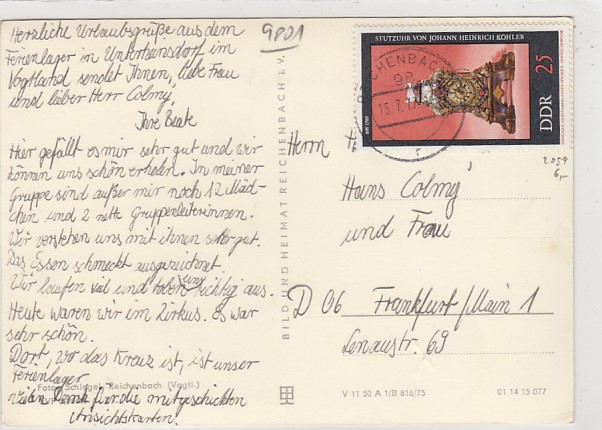 Herzliche Urlaubsgrüße aus dem
Ferienlager in Unterheinsdorf im
Vogtland sendet Ihnen, liebe Frau
und lieber Herr Colmy,
Ihre Beate
Hier gefällt es mir sehr gut und wir
können uns schön erholen. In meiner
Gruppe sind außer mir noch 12 Mäd-
chen und 2 nette Gruppenleiterinnen.
Wir verstehen uns mit ihnen sehr gut.
Das Essen schmeckt ausgezeichnet.
Wir laufen viel und toben uns richtig aus.
Heute waren wir im Zirkus. Es war
sehr schön.
Dort, wo das Kreuz ist, ist unser
Ferienlager
Foto: Schlegel, Reichenbach (Vogtl.)
Vielen Dank für die mitgeschickten
Ansichtskarten.
9801
BILD UND HEIMAT REICHENBACH i. V.
STUTZUHR VON JOHANN HEINRICH KÖHLER
25
DDR
REICHENBACH
98
15.7.
r
2059
6,-
Herrn
Hans Colmy
und Frau
D 06 Frankfurt/Main 1
Lenaustr. 69
V 11 50 A 1/B 816/75
01 14 15 077